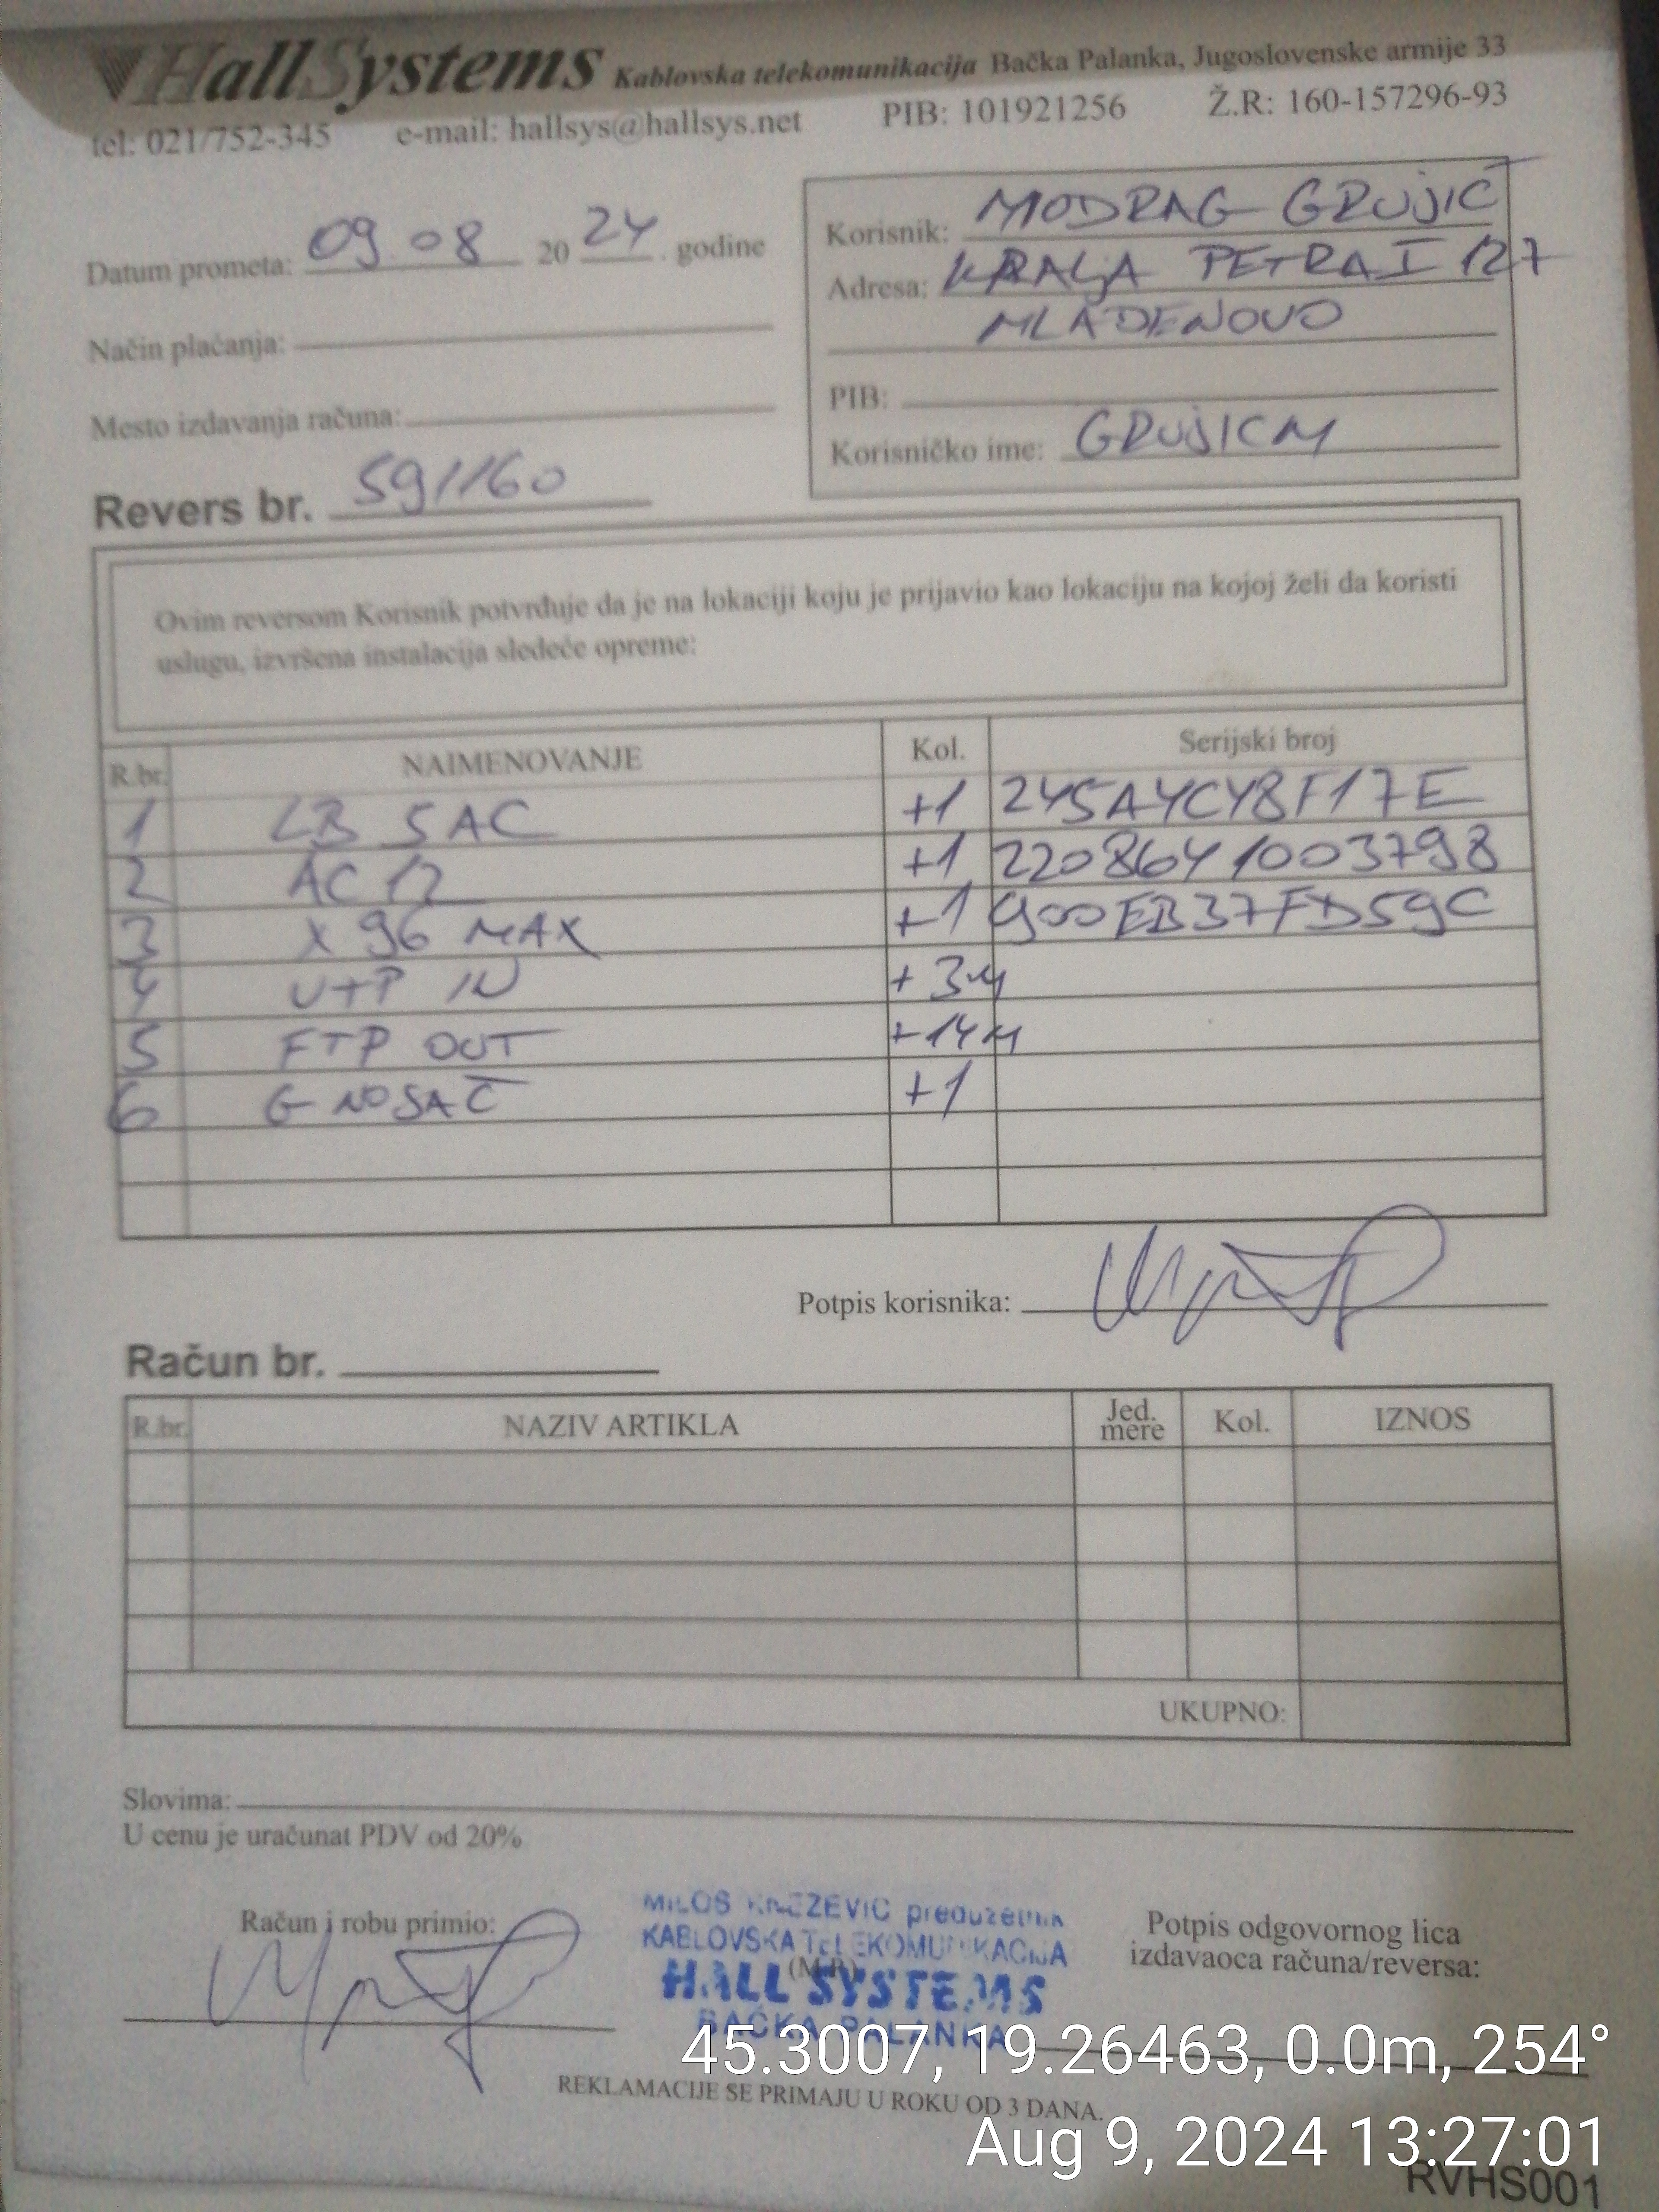 HallSystems Kablovska telekomunikacija Bačka Palanka, Jugoslovenske armije 33
tel: 021/752-345 e-mail: hallsys@hallsys.net PIB: 101921256 Ž.R: 160-157296-93
Datum prometa: 09.08 2024. godine
Način plaćanja:
Mesto izdavanja računa:
Revers br. 591160
Korisnik: MODRAG GRUJIĆ
Adresa: KRALJA PETRA I 127
MLADENOVO
PIB:
Korisničko ime: GRUJICM
Ovim reversom Korisnik potvrđuje da je na lokaciji koju je prijavio kao lokaciju na kojoj želi da koristi
uslugu, izvršena instalacija sledeće opreme:
R.br. NAIMENOVANJE Kol. Serijski broj
1 LB 5AC +1 245A4C48F17E
2 AC 12 +1 2208641003798
3 X 96 MAX +1 900EB37FD59C
4 UTP IN +3M
5 FTP OUT +14M
6 G NOSAČ +1
Potpis korisnika:
Račun br.
R.br. NAZIV ARTIKLA Jed. mere Kol. IZNOS
UKUPNO:
Slovima:
U cenu je uračunat PDV od 20%
Račun i robu primio:
MILOŠ KNEŽEVIĆ preduzetnik
KABLOVSKA TELEKOMUNIKACIJA
(M.P.)
HALL SYSTEMS
BAČKA PALANKA
Potpis odgovornog lica
izdavaoca računa/reversa:
45.3007, 19.26463, 0.0m, 254°
REKLAMACIJE SE PRIMAJU U ROKU OD 3 DANA.
Aug 9, 2024 13:27:01
RVHS001